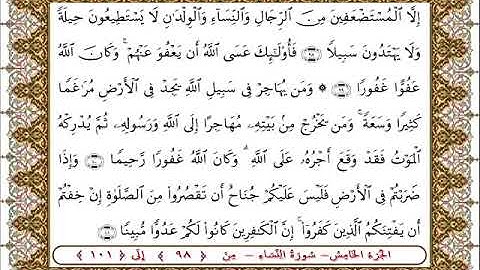 إِلَّا الْمُسْتَضْعَفِينَ مِنَ الرِّجَالِ وَالنِّسَاءِ وَالْوِلْدَانِ لَا يَسْتَطِيعُونَ حِيلَةً
وَلَا يَهْتَدُونَ سَبِيلًا ﴿٩٨﴾ فَأُولَٰئِكَ عَسَى اللَّهُ أَنْ يَعْفُوَ عَنْهُمْ ۚ وَكَانَ اللَّهُ
عَفُوًّا غَفُورًا ﴿٩٩﴾ ۞ وَمَن يُهَاجِرْ فِي سَبِيلِ اللَّهِ يَجِدْ فِي الْأَرْضِ مُرَاغَمًا
كَثِيرًا وَسَعَةً ۚ وَمَن يَخْرُجْ مِنْ بَيْتِهِ مُهَاجِرًا إِلَى اللَّهِ وَرَسُولِهِ ثُمَّ يُدْرِكْهُ
الْمَوْتُ فَقَدْ وَقَعَ أَجْرُهُ عَلَى اللَّهِ ۗ وَكَانَ اللَّهُ غَفُورًا رَحِيمًا ﴿١٠٠﴾ وَإِذَا
ضَرَبْتُمْ فِي الْأَرْضِ فَلَيْسَ عَلَيْكُمْ جُنَاحٌ أَنْ تَقْصُرُوا مِنَ الصَّلَوٰةِ إِنْ خِفْتُمْ
أَن يَفْتِنَكُمُ الَّذِينَ كَفَرُوا ۚ إِنَّ الْكَافِرِينَ كَانُوا لَكُمْ عَدُوًّا مُبِينًا ﴿١٠١﴾
الجزء الخامس – سورة النساء – من ﴿ ٩٨ ﴾ إلى ﴿ ١٠١ ﴾